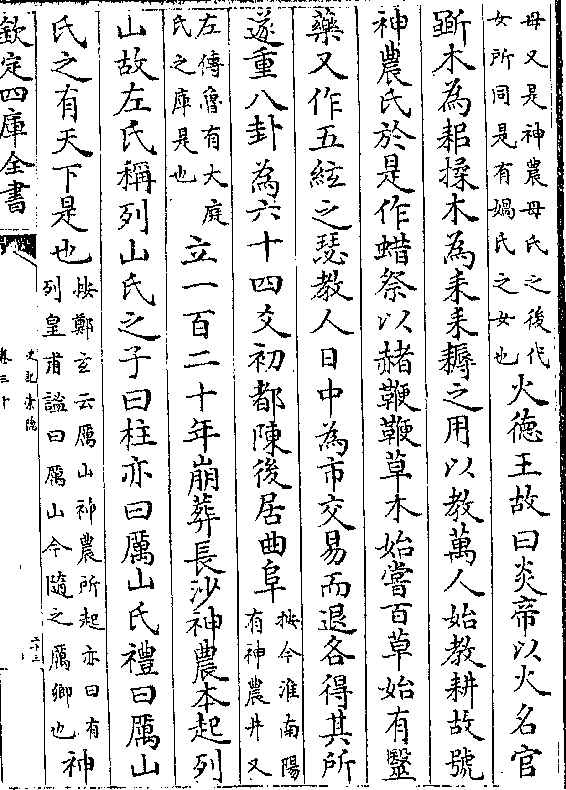 母又是神農母氏之後代
女所同是有媧氏之女也
火德王故曰炎帝以火名官
斵木為耜揉木為耒耒耨之用以教萬人始教耕故號
神農氏於是作蜡祭以赭鞭鞭草木始嘗百草始有毉
藥又作五絃之瑟教人日中為市交易而退各得其所
遂重八卦為六十四爻初都陳後居曲阜
按今淮南陽
有神農井又
左傳魯有大庭
氏之庫是也
立一百二十年崩葬長沙神農本起列
山故左氏稱列山氏之子曰柱亦曰厲山氏禮曰厲山
氏之有天下是也
按鄭玄云厲山神農所起亦曰有
列皇甫謐曰厲山今隨之厲鄉也
神
欽定四庫全書
史記索隱
卷三十
二十三